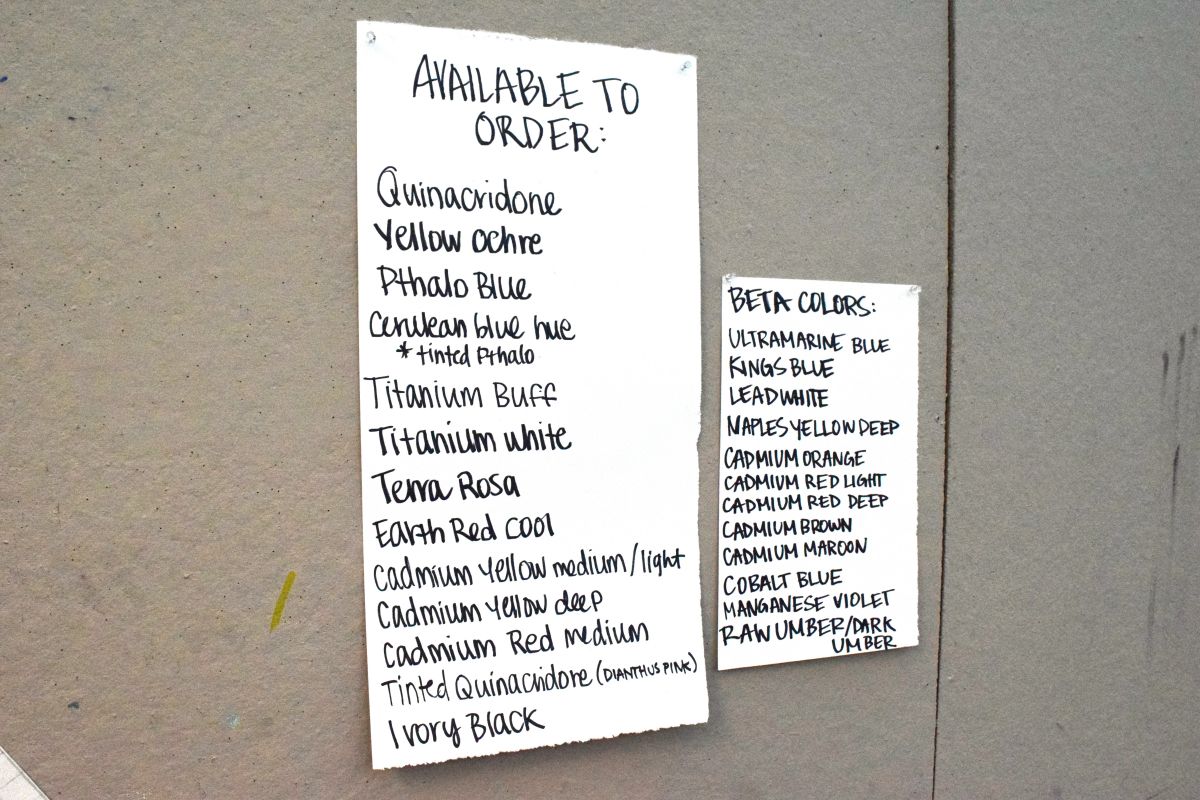 AVAILABLE TO
ORDER:
Quinacridone
Yellow Ochre
Pthalo Blue
Cerulean blue hue
* tinted Pthalo
Titanium Buff
Titanium white
Terra Rosa
Earth Red cool
Cadmium Yellow medium/light
Cadmium Yellow deep
Cadmium Red medium
Tinted Quinacridore (DIANTHUS PINK)
Ivory Black
BETA COLORS:
ULTRAMARINE BLUE
KINGS BLUE
LEAD WHITE
NAPLES YELLOW DEEP
CADMIUM ORANGE
CADMIUM RED LIGHT
CADMIUM RED DEEP
CADMIUM BROWN
CADMIUM MAROON
COBALT BLUE
MANGANESE VIOLET
RAW UMBER/DARK
UMBER